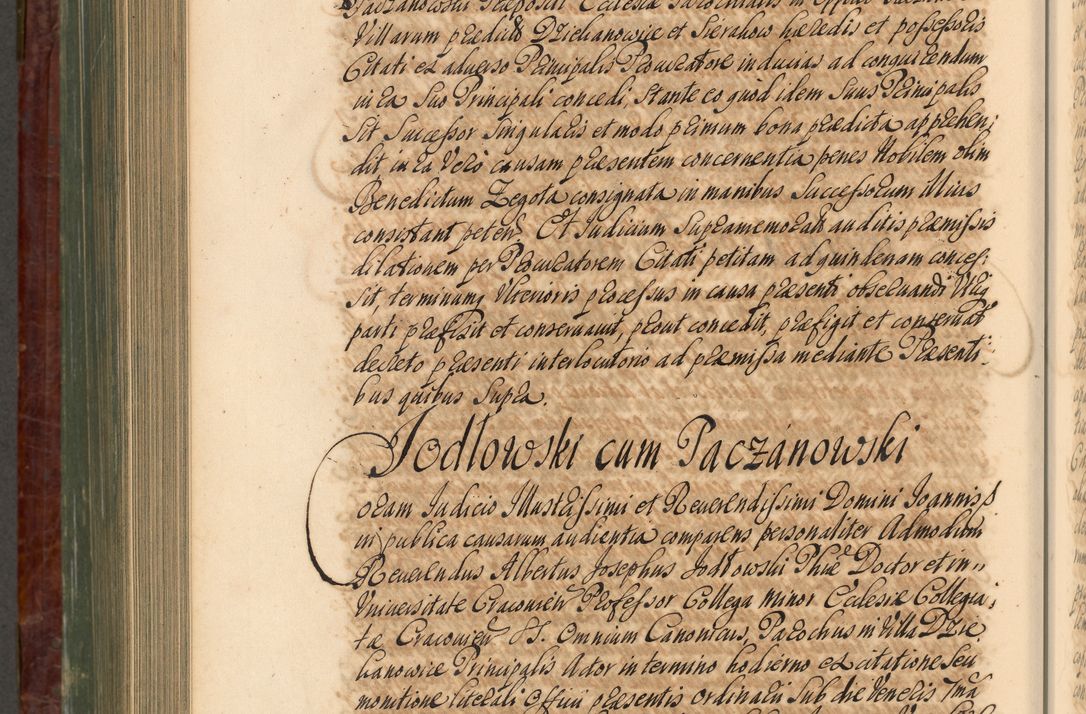 Paczanowski Præpositi Ecclesiæ Parochialis in
Villarum prædict Dziekanowice et Sierakow hæredis et possessoris
Citati ex adverso Principalis Procuratore inducias ad conquirendum
in ea Suo Principali concedi, Stante eo quod idem Suus Principalis
Sit Successor Singularis et modo primum bona prædicta apprehen:
dit in ea Vero causam præsentem concernentia penes Nobilem olim
Benedictum Zegota consignata in manibus Successorum Illius
consistant peten. Et Judicium Supramemorat auditis præmissis
dilationem per Procuratorem Citati petitam ad quindenam conces:
sit, terminumq Ulterioris processus in causa præsenti observandi Utriq
parti præfixit et conservavit, prout concedit, præfigit et conservat
decreto præsenti interlocutorio ad præmissa mediante Præsenti:
bus quibus Supra.
Jodłowski cum Paczánowski
Coram Judicio Illustrissimi et Reverendissimi Domini Joannis
in publica causarum audientia comparens personaliter Admodum
Reverendus Albertus Josephus Jodłowski Phiæ Doctor et in
Universitate Cracovien Professor Collega Minor Ecclesiæ Collegia:
tæ Cracovien SS. Omnium Canonicus, Parochus in Villa Dzie
kanowice Principalis Actor in termino hodierno ex citatione seu
monitione literali Officii præsentis Ordinarii Sub die Veneris 7ma